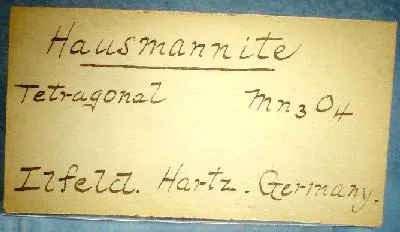 Hausmannite
Tetragonal Mn3O4
Ilfeld. Hartz. Germany.